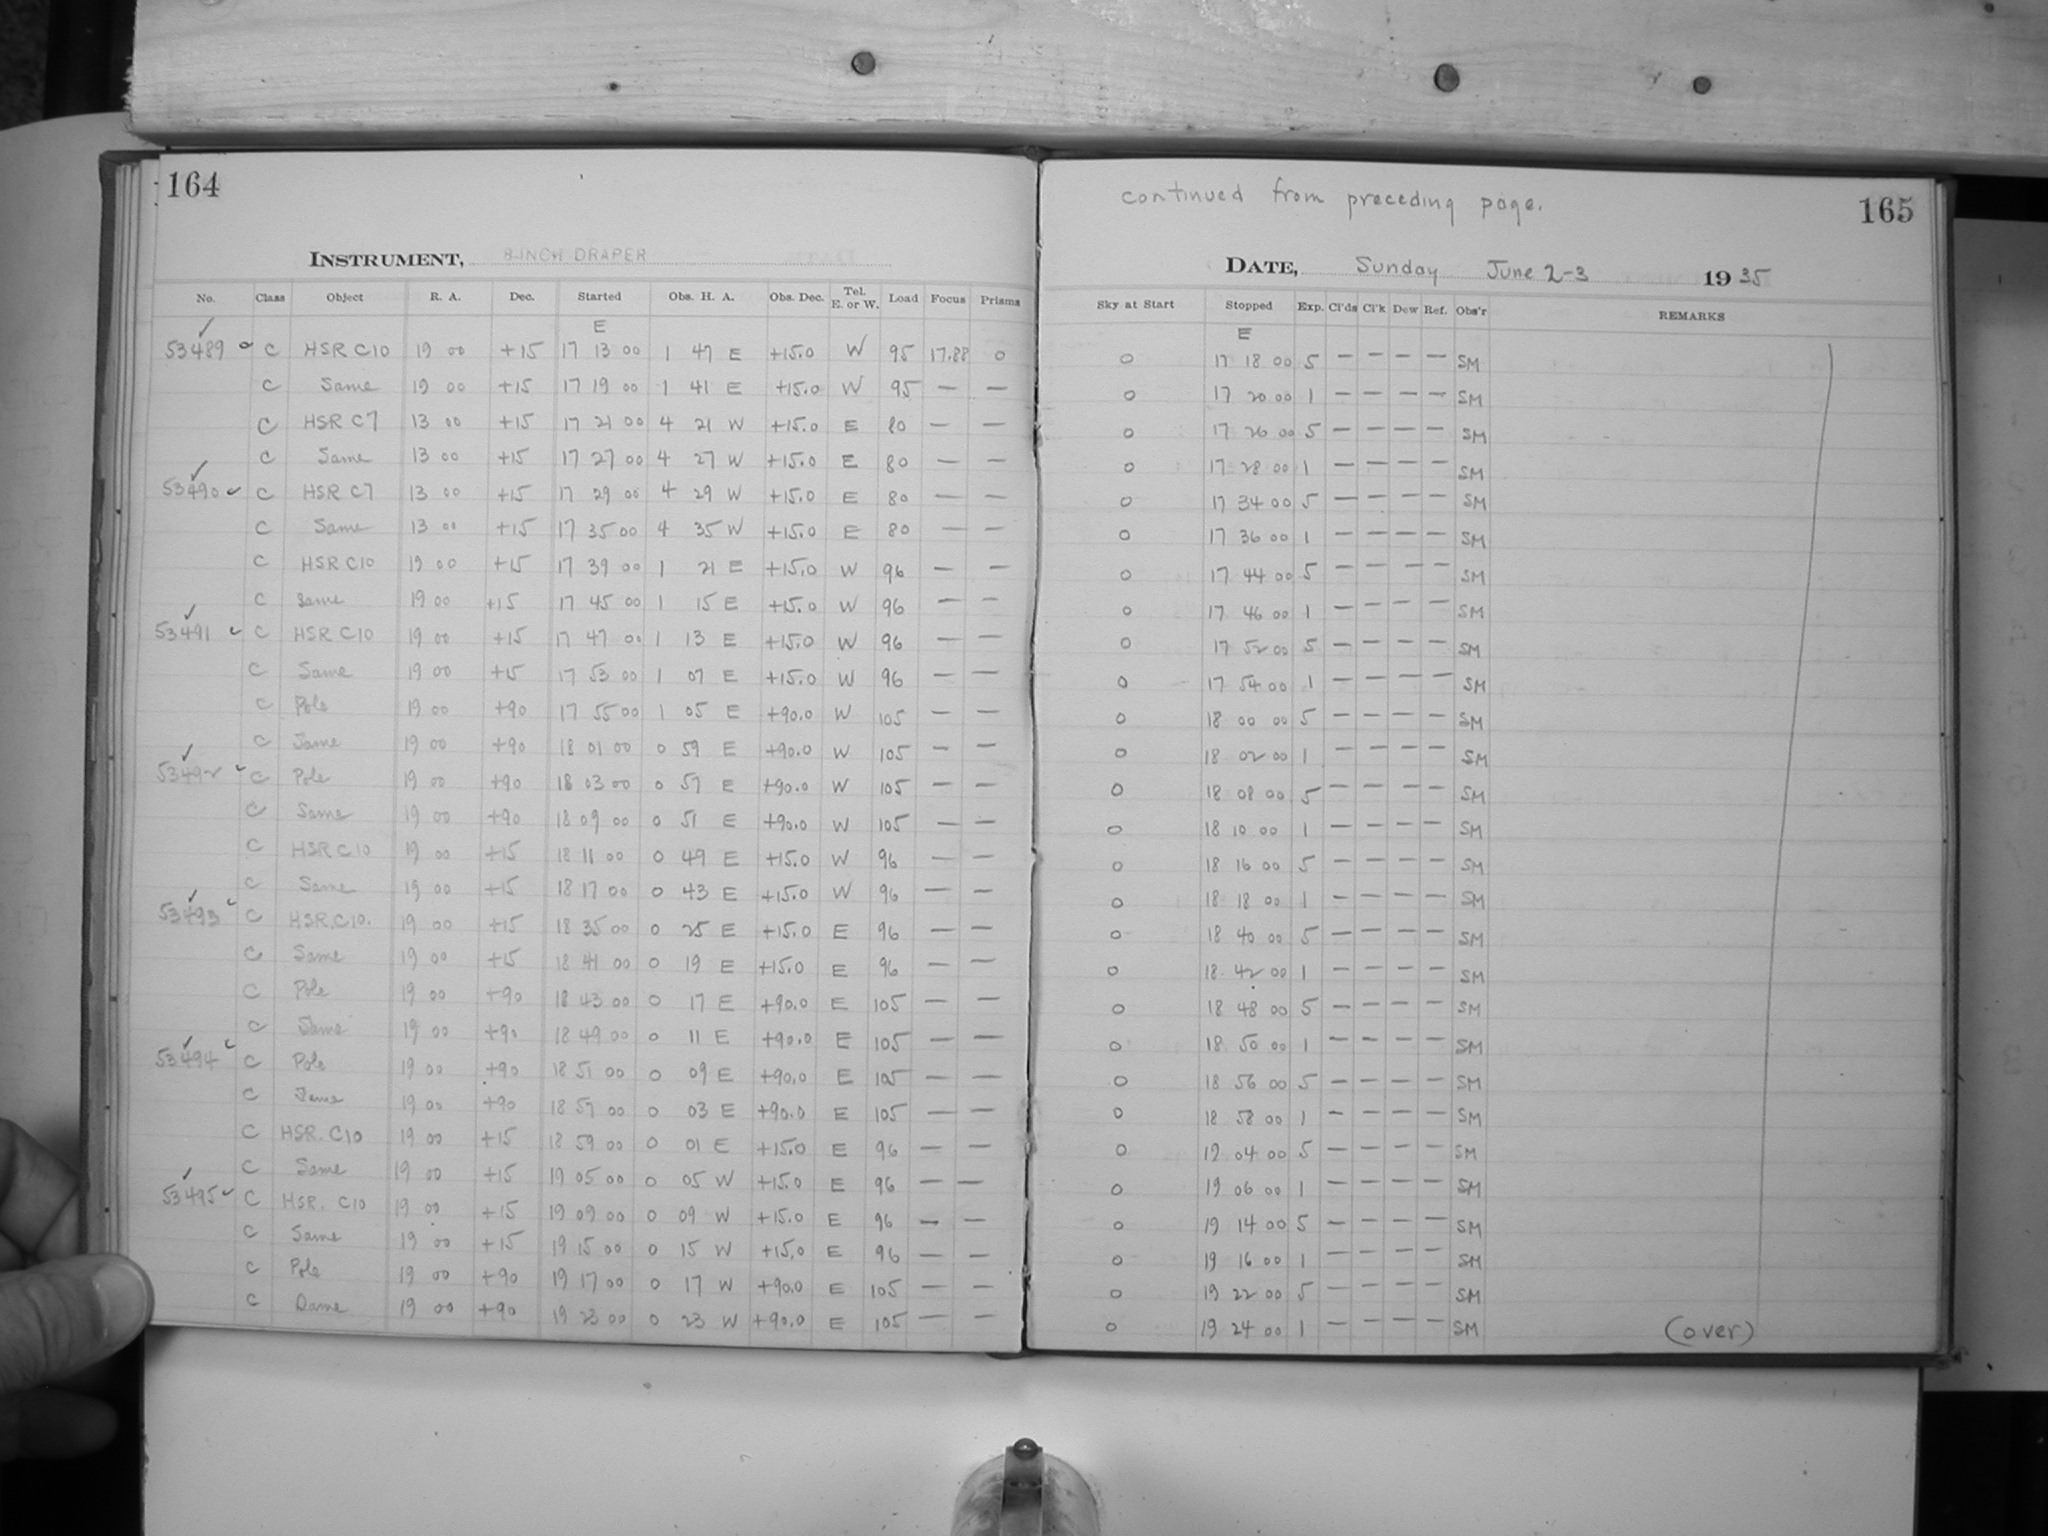 164
INSTRUMENT, 8-INCH DRAPER
No. Class Object R. A. Dec. Started Obs. H. A. Obs. Dec. Tel. E. or W. Load Focus Prisms
E
53489 C HSR C10 19 00 +15 17 13 00 1 47 E +15.0 W 95 17.88 0
C Same 19 00 +15 17 19 00 1 41 E +15.0 W 95 — —
C HSR C7 13 00 +15 17 21 00 4 21 W +15.0 E 80 — —
C Same 13 00 +15 17 27 00 4 27 W +15.0 E 80 — —
53490 C HSR C7 13 00 +15 17 29 00 4 29 W +15.0 E 80 — —
C Same 13 00 +15 17 35 00 4 35 W +15.0 E 80 — —
C HSR C10 19 00 +15 17 39 00 1 21 E +15.0 W 96 — —
C Same 19 00 +15 17 45 00 1 15 E +15.0 W 96 — —
53491 C HSR C10 19 00 +15 17 47 00 1 13 E +15.0 W 96 — —
C Same 19 00 +15 17 53 00 1 07 E +15.0 W 96 — —
C Pole 19 00 +90 17 55 00 1 05 E +90.0 W 105 — —
C Same 19 00 +90 18 01 00 0 59 E +90.0 W 105 — —
53492 C Pole 19 00 +90 18 03 00 0 57 E +90.0 W 105 — —
C Same 19 00 +90 18 09 00 0 51 E +90.0 W 105 — —
C HSR C10 19 00 +15 18 11 00 0 49 E +15.0 W 96 — —
C Same 19 00 +15 18 17 00 0 43 E +15.0 W 96 — —
53493 C HSR. C10. 19 00 +15 18 35 00 0 25 E +15.0 E 96 — —
C Same 19 00 +15 18 41 00 0 19 E +15.0 E 96 — —
C Pole 19 00 +90 18 43 00 0 17 E +90.0 E 105 — —
C Same 19 00 +90 18 49 00 0 11 E +90.0 E 105 — —
53494 C Pole 19 00 +90 18 51 00 0 09 E +90.0 E 105 — —
C Same 19 00 +90 18 57 00 0 03 E +90.0 E 105 — —
C HSR. C10 19 00 +15 18 59 00 0 01 E +15.0 E 96 — —
C Same 19 00 +15 19 05 00 0 05 W +15.0 E 96 — —
53495 C HSR. C10 19 00 +15 19 09 00 0 09 W +15.0 E 96 — —
C Same 19 00 +15 19 15 00 0 15 W +15.0 E 96 — —
C Pole 19 00 +90 19 17 00 0 17 W +90.0 E 105 — —
C Same 19 00 +90 19 23 00 0 23 W +90.0 E 105 — —
continued from preceding page.
165
DATE, Sunday June 2-3 1935
Sky at Start Stopped Exp. Cl'ds Cl'k Dew Ref. Obs'r REMARKS
E
0 17 18 00 5 — — — — SM
0 17 20 00 1 — — — — SM
0 17 26 00 5 — — — — SM
0 17 28 00 1 — — — — SM
0 17 34 00 5 — — — — SM
0 17 36 00 1 — — — — SM
0 17 44 00 5 — — — — SM
0 17 46 00 1 — — — — SM
0 17 52 00 5 — — — — SM
0 17 54 00 1 — — — — SM
0 18 00 00 5 — — — — SM
0 18 02 00 1 — — — — SM
0 18 08 00 5 — — — — SM
0 18 10 00 1 — — — — SM
0 18 16 00 5 — — — — SM
0 18 18 00 1 — — — — SM
0 18 40 00 5 — — — — SM
0 18 42 00 1 — — — — SM
0 18 48 00 5 — — — — SM
0 18 50 00 1 — — — — SM
0 18 56 00 5 — — — — SM
0 18 58 00 1 — — — — SM
0 19 04 00 5 — — — — SM
0 19 06 00 1 — — — — SM
0 19 14 00 5 — — — — SM
0 19 16 00 1 — — — — SM
0 19 22 00 5 — — — — SM
0 19 24 00 1 — — — — SM (over)